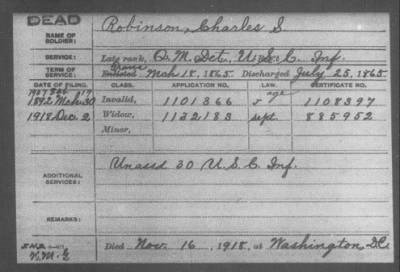 DEAD
NAME OF SOLDIER: Robinson, Charles S.
SERVICE: Late rank, Q. M. Sgt, U.S.C. Inf.
TERM OF SERVICE: Enlisted Mch 18, 1865 Discharged July 25, 1865
DATE OF FILING. CLASS. APPLICATION NO. LAW. CERTIFICATE NO.
1892 Mch 30 Invalid, 1101366 age 1108397
1918 Dec. 2 Widow, 1132183 Sept. 885952
Minor,
ADDITIONAL SERVICES: Unassd 30 U.S.C. Inf.
REMARKS:
Died Nov. 16, 1918, at Washington, D.C.